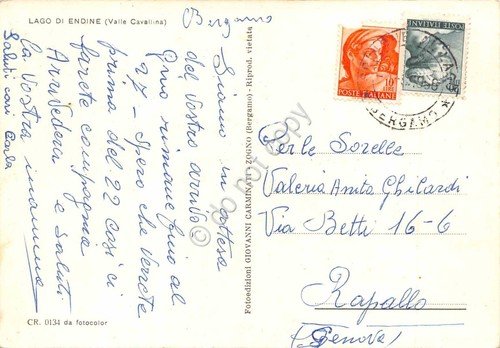 LAGO DI ENDINE (Valle Cavallina)
Bergamo
Siamo in attesa
del Vostro arrivo
Gino rimane fino al
27 - Spero che verrete
prima del 22 così ci
farete compagnia
Arrivederci e saluti
la Vostra mamma
Saluti cari Carla
CR. 0134 da fotocolor
Fotoedizioni GIOVANNI CARMINATI - ZOGNO (Bergamo) - Riprod. vietata
10
LIRE
POSTE ITALIANE
POSTE ITALIANE
BERGAMO
Per le Sorelle
Valeria Anita Ghilardi
Via Betti 16-6
Rapallo
(Genova)
© do not copy